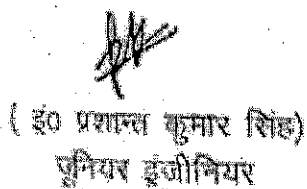 ( इं0 प्रशान्त कुमार सिंह)
जूनियर इंजीनियर